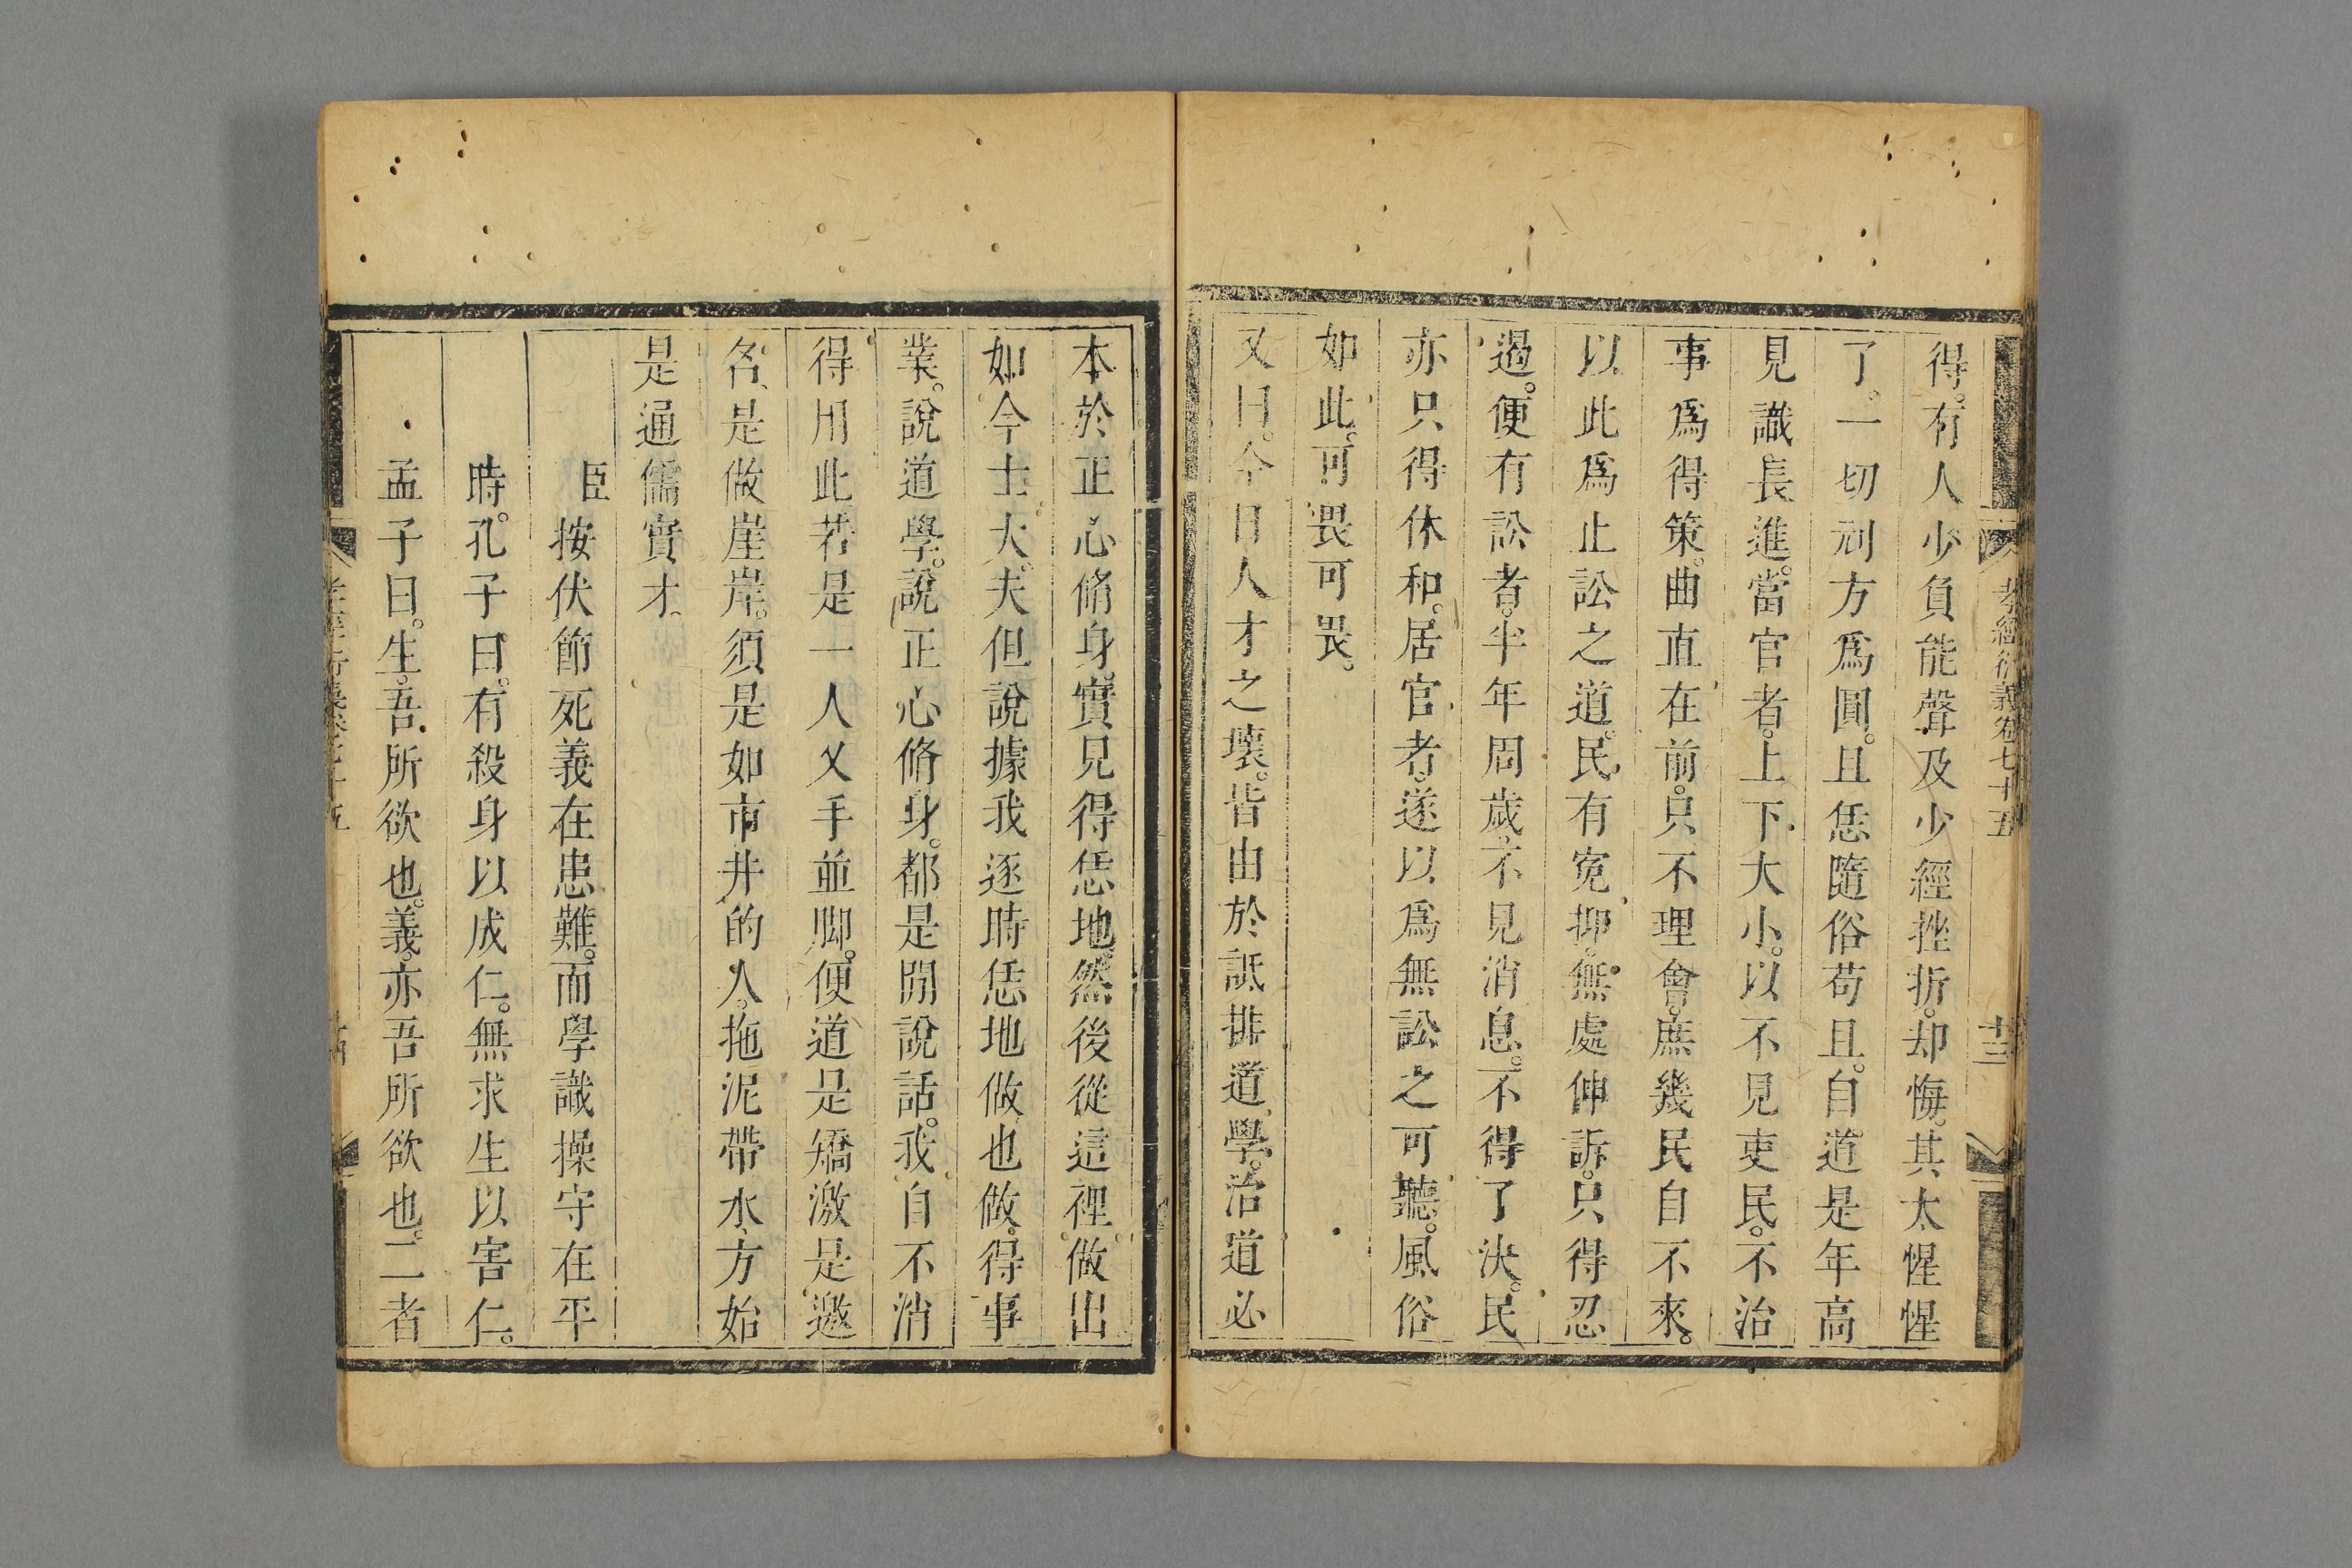 孝經衍義卷七十五 十三
得。有人少負能聲及少經挫折。却悔其太惺惺
了。一切刓方爲圓。且恁隨俗苟且。自道是年高
見識長進。當官者。上下大小。以不見吏民。不治
事爲得策。曲直在前。只不理會。庶幾民自不來。
以此爲止訟之道。民有寃抑。無處伸訴。只得忍
過。便有訟者。半年周歲。不見消息。不得了決。民
亦只得休和。居官者。遂以爲無訟之可聽。風俗
如此。可畏可畏。
又曰。今日人才之壞。皆由於詆排道學。治道必
本於正心脩身。實見得恁地。然後從這裡做出
如今士大夫但說據我逐時恁地做也做。得事
業。說道學。說正心脩身。都是閒說話。我自不消
得用此。若是一人叉手並脚。便道是矯激是邀
名、是做崖岸。須是如市井的人。拖泥帶水、方始
是通儒實才。
臣按伏節死義在患難。而學識操守在平
時。孔子曰。有殺身以成仁。無求生以害仁。
孟子曰。生。吾所欲也。義。亦吾所欲也。二者